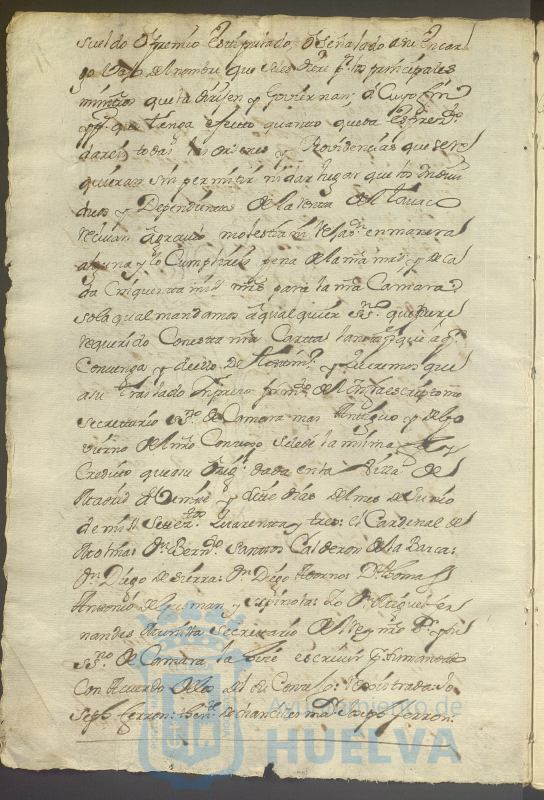 sueldo o premio estipulado, o señalado a su encar
go bajo del nombre que se les diere pr. los principales
ministros que la dirijen y Goviernan; a Cuyo fin
y pa. que tenga efecto quanto queda expresdo.
dareis todas las ordenes y Providencias que se re
quieran sin permitir ni dar lugar que los Indivi
duos y Dependientes de la renta del tavaco
recivan agravio molestia ni vejaon. en manera
alguna y lo Cumplireis pena de la nra mrd. y de ca
da Cinquenta mil mrs para la nra Camara
so la qual mandamos a qualquier ssno. que fuere
requerido Con esta nra Carta la notifique a qn.
Convenga y de ello de testimo. y queremos que
a su traslado Impreso firmdo de el Infraescripto nro
Secretario ssno de Camara mas Antiguo y de Go
vierno del nro Consejo se le de la misma fee y
Credito que a su Origl. dada en la Villa de
Madrid a veinte y siete dias del mes de Junio
de mil Setetos. Quarenta y tres: el Cardenal de
Molina: Dn. Berndo Santos Calderon de la Barca:
Dn. Diego de Sierra: Dn Diego Adorno: Dn. Thomas
Antonio de Guzman y Spinola: Yo Dn. Miguel Fer
nandez Munilla Secretario del rey nro Sr. y su
ssno de Camara la hice escrivir por su mandado
Con Acuerdo de los del su Consejo: rexistrada Jo
seph Ferron: thente. de chanciller mor. Joseph Ferron:
Ayuntamiento de
HUELVA